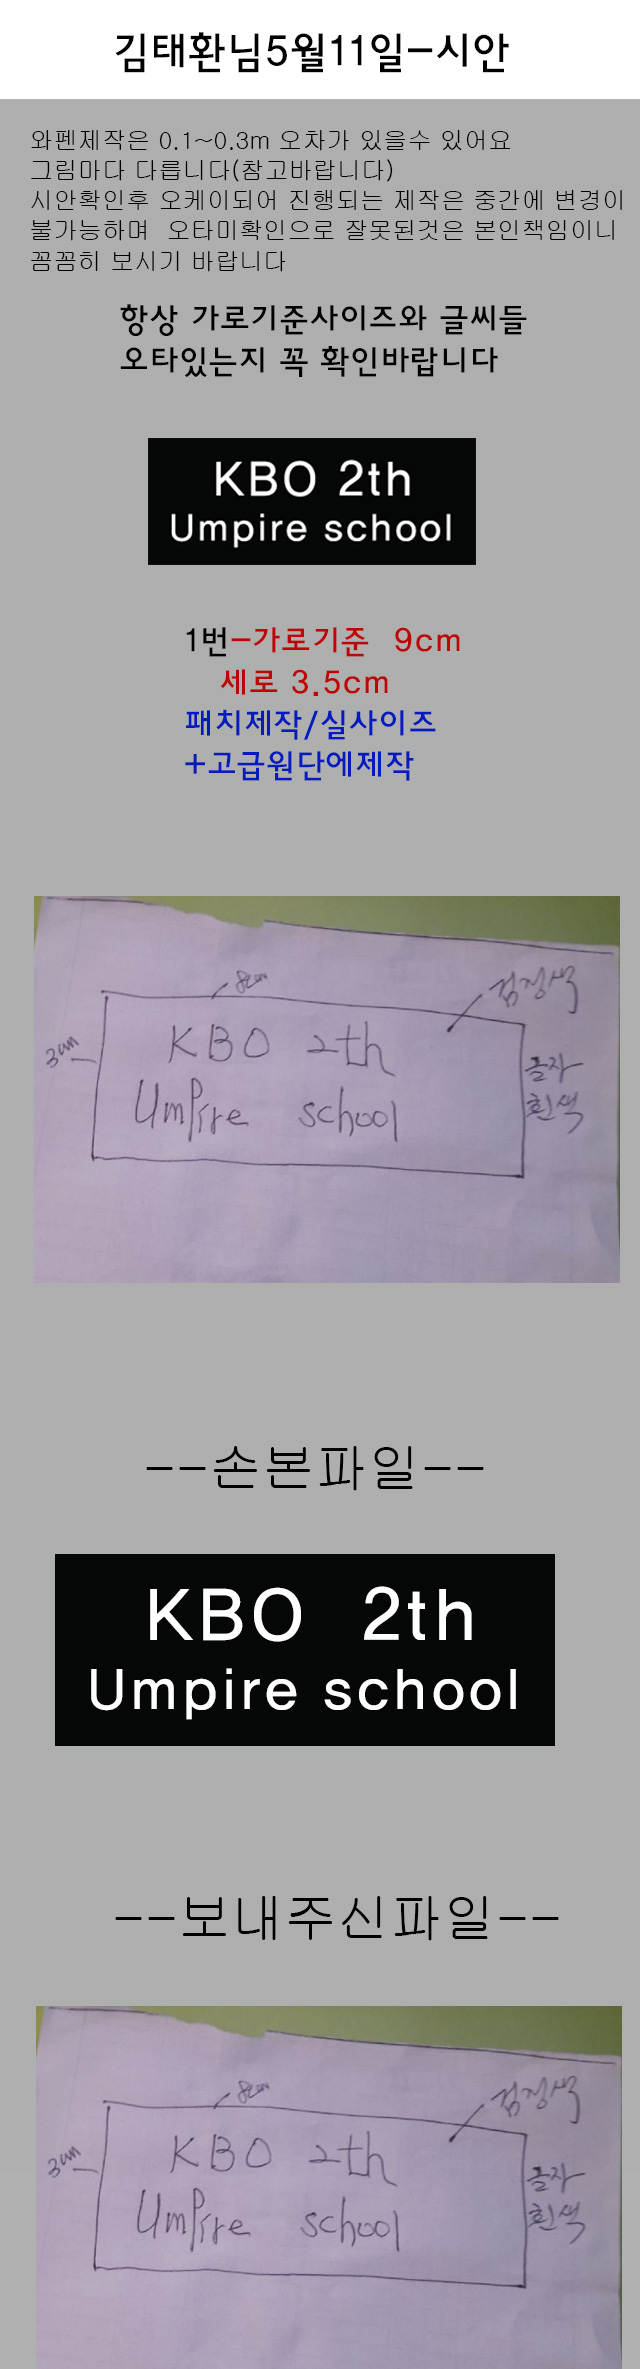 김태환님5월11일-시안
와펜제작은 0.1~0.3m 오차가 있을수 있어요
그림마다 다릅니다(참고바랍니다)
시안확인후 오케이되어 진행되는 제작은 중간에 변경이
불가능하며 오타미확인으로 잘못된것은 본인책임이니
꼼꼼히 보시기 바랍니다
항상 가로기준사이즈와 글씨들
오타있는지 꼭 확인바랍니다
KBO 2th
Umpire school
1번-가로기준 9cm
세로 3.5cm
패치제작/실사이즈
+고급원단에제작
8cm
검정색
3cm
KBO 2th
글자
Umpire school
흰색
--손본파일--
KBO 2th
Umpire school
--보내주신파일--
8cm
검정색
3cm
KBO 2th
글자
Umpire school
흰색